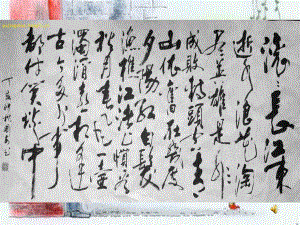 滚々長江東
逝水浪花淘
尽英雄是非
成敗轉頭空青
山依舊在幾度
夕陽紅白髮
漁樵江渚上慣看
秋月春風一壺
濁酒喜相逢
古今多少事
都付笑談中